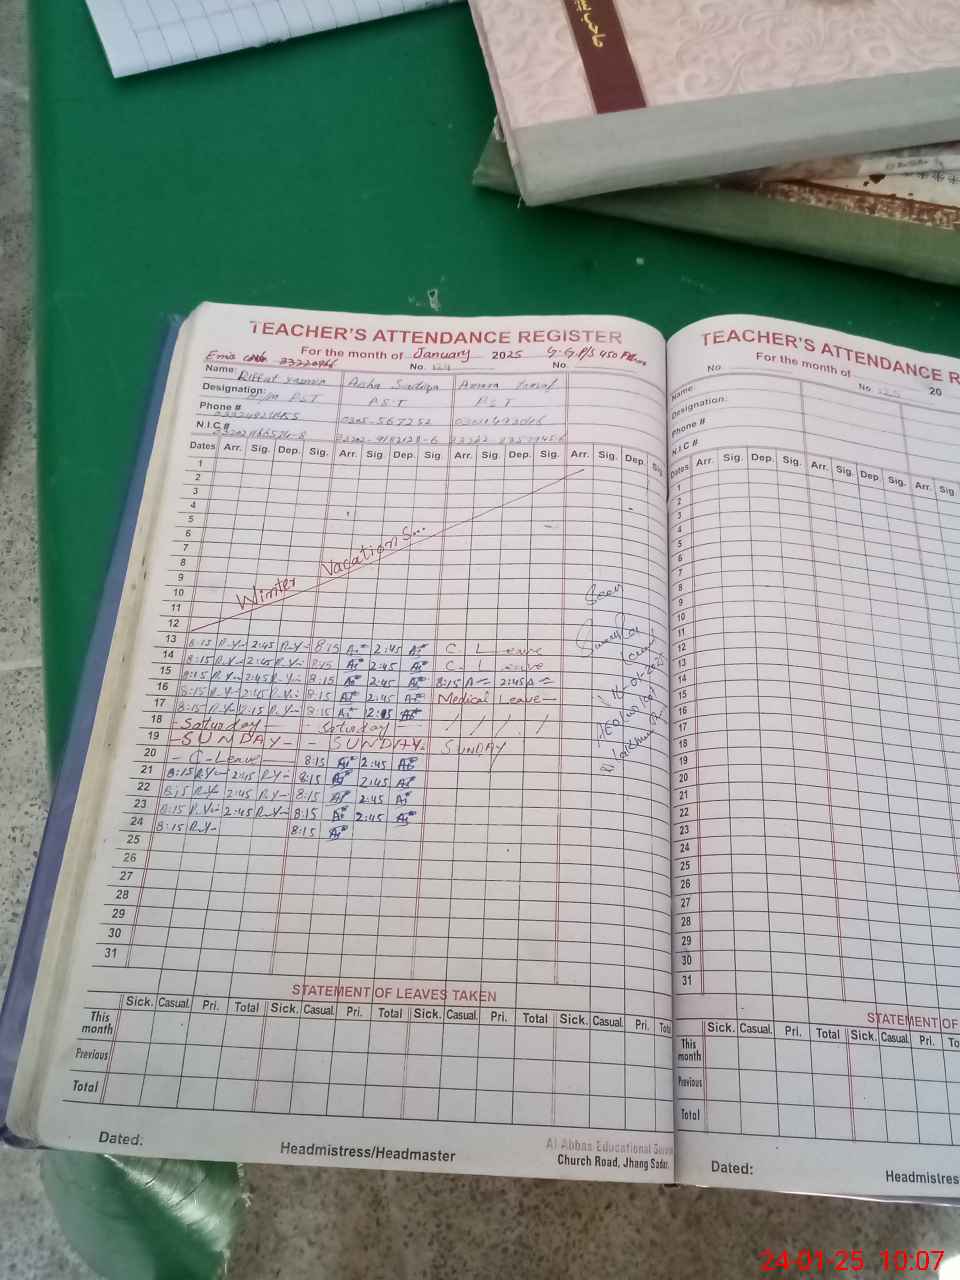 صاحب
TEACHER'S ATTENDANCE REGISTER
For the month of January 2025 G.G.P/S 450
Emis code
No. No.
Name: Riffat Aisha
Designation: PST P.S.T P.S.T
Phone #
N.I.C #
Dates Arr. Sig. Dep. Sig. Arr. Sig. Dep. Sig. Arr. Sig. Dep. Sig. Arr. Sig. Dep. Sig.
1
2
3
4
5
6
7
8
9
10
11
12
Winter Vacations...
13 8:15 R.Y 2:45 R.Y 8:15 2:45 C. Leave
14 8:15 R.Y 2:45 R.Y 8:15 2:45 C. Leave
15 8:15 R.Y 2:45 R.Y 8:15 2:45 8:15 2:45
16 8:15 R.Y 2:45 R.Y 8:15 2:45 Medical Leave
17 8:15 R.Y 2:15 R.Y 8:15 2:15 / / / /
18 - Saturday - - Saturday -
19 - SUNDAY - - SUNDAY - SUNDAY
20 - C-Leave 8:15 2:45
21 8:15 R.Y 2:45 R.Y 8:15 2:45
22 8:15 R.Y 2:45 R.Y 8:15 2:45
23 8:15 R.Y 2:45 R.Y 8:15 2:45
24 8:15 R.Y 8:15
25
26
27
28
29
30
31
Seen
STATEMENT OF LEAVES TAKEN
Sick. Casual. Pri. Total Sick. Casual. Pri. Total Sick. Casual. Pri. Total Sick. Casual. Pri. Total
This month
Previous
Total
Dated:
Headmistress/Headmaster
Al Abbas Educational
Church Road, Jhang Sadar.
TEACHER'S ATTENDANCE R
For the month of
No. No. 20
Name
Designation:
Phone #
N.I.C #
Dates Arr. Sig. Dep. Sig. Arr. Sig. Dep. Sig. Arr. Sig
1
2
3
4
5
6
7
8
9
10
11
12
13
14
15
16
17
18
19
20
21
22
23
24
25
26
27
28
29
30
31
STATEMENT OF
Sick. Casual. Pri. Total Sick. Casual. Pri. To
This month
Previous
Total
Dated:
Headmistress
24-01-25 10:07